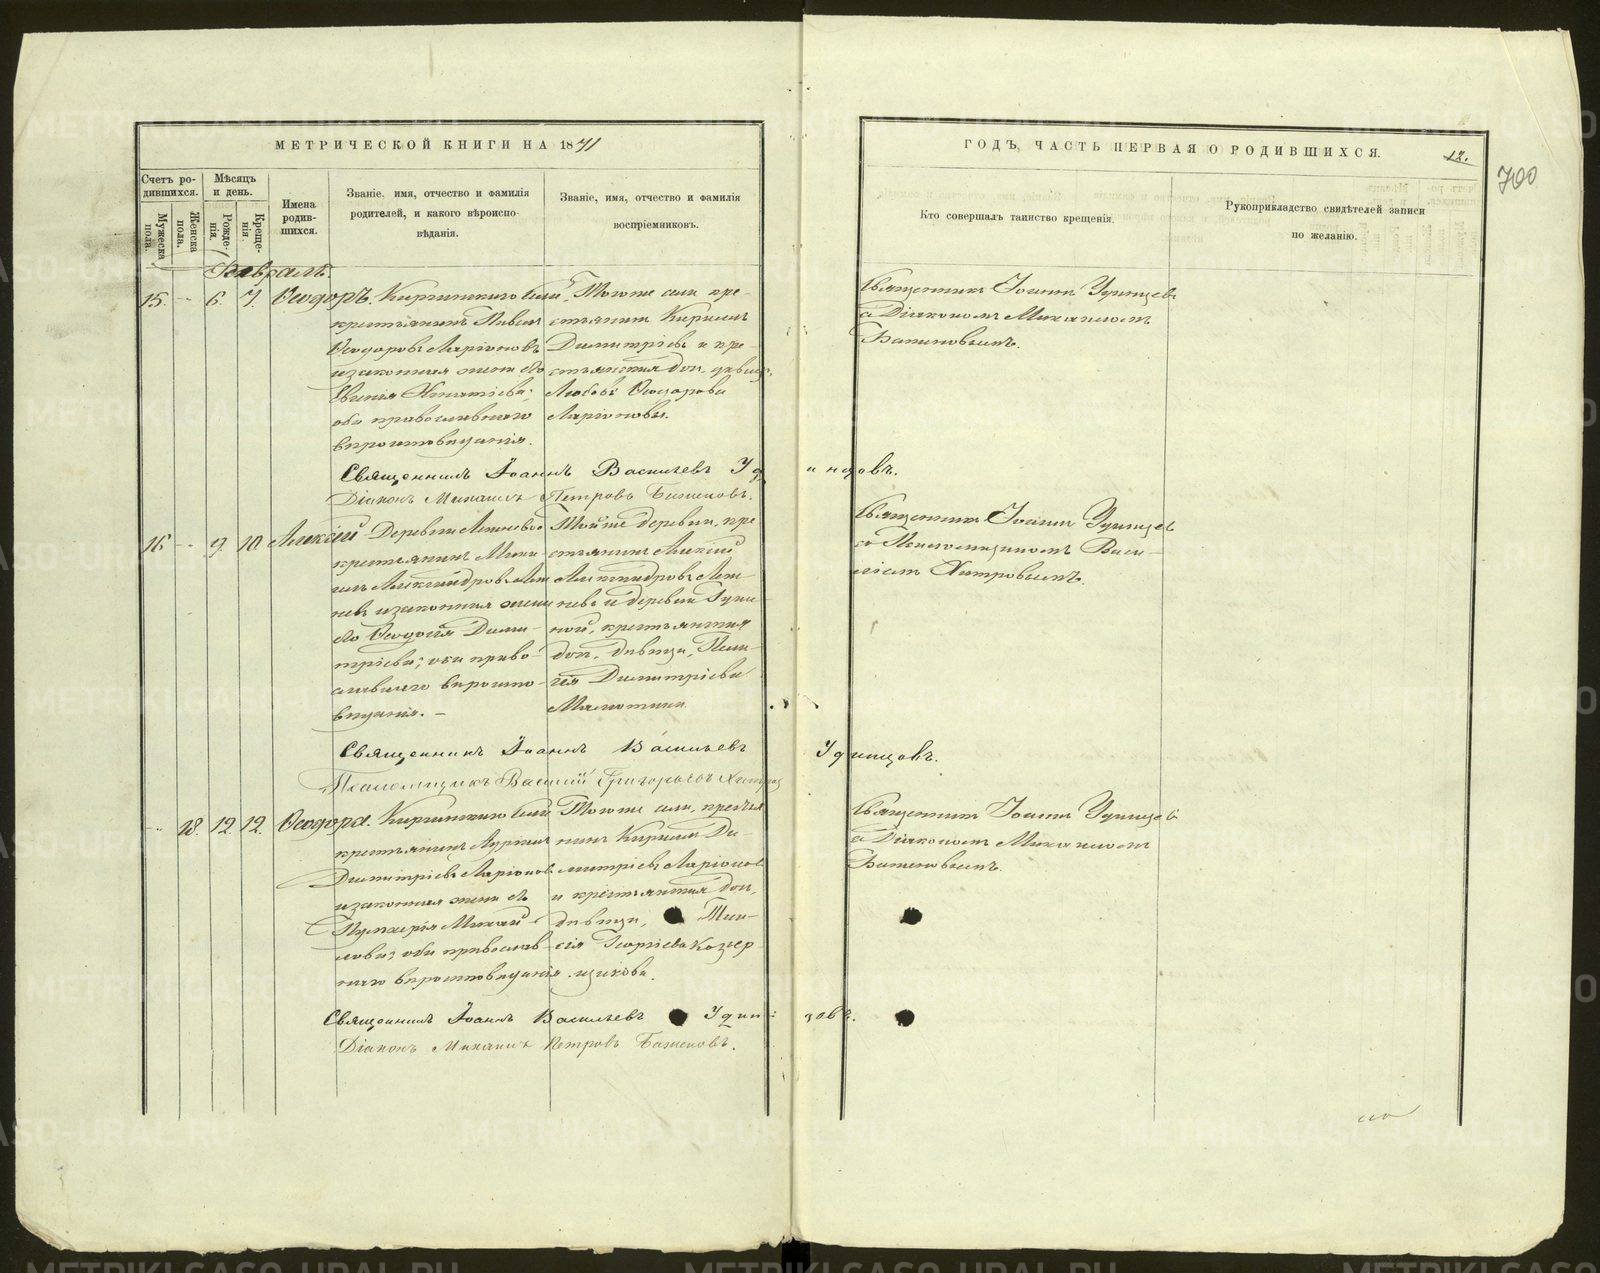 МЕТРИЧЕСКОЙ КНИГИ НА 1871
ГОДЪ, ЧАСТЬ ПЕРВАЯ О РОДИВШИХСЯ.
12.
700
Счетъ ро-
дившихся.
Мѣсяцъ
и день.
Мужеска
пола.
Женска
пола.
Рожде-
нія.
Креще-
нія.
Имена
родив-
шихся.
Званіе, имя, отчество и фамилія
родителей, и какого вѣроиспо-
вѣданія.
Званіе, имя, отчество и фамилія
воспріемниковъ.
Кто совершалъ таинство крещенія.
Рукоприкладство свидѣтелей записи
по желанію.
Февраль.
15. 6. 7. Ѳеодоръ.
Киргинскаго села
крестьянинъ
Ѳеодоровъ Ларіоновъ
и законная жена его
Игнатіева;
оба православнаго
вѣроисповѣданія.
Тогоже села кре-
стьянинъ Кириллъ
Димитріевъ и кре-
стьянская доч. дѣвица
Любовь Ѳеодорова
Ларіонова.
Священникъ Іоаннъ Удинцевъ
съ Діакономъ Михаиломъ
Баженовымъ.
Священникъ Іоаннъ Васильевъ Удинцовъ.
Діаконъ Михаилъ Петровъ Баженовъ.
16 9. 10. Алексій
Деревни
крестьянинъ Миха-
илъ Александровъ
и законная жена
его Ѳеодосія Дими-
тріева; оба право-
славнаго вѣроиспо-
вѣданія.
Тойже деревни кре-
стьянинъ Алексій
Александровъ
и деревни
крестьянская
доч. дѣвица, Пела-
гея Димитріева
Священникъ Іоаннъ Удинцевъ
съ Псаломщикомъ Васи-
ліемъ Хитровымъ.
Священникъ Іоаннъ Васильевъ Удинцовъ.
Псаломщикъ Василій Григорьевъ Хитровъ
18. 12 12. Ѳеодора.
Киргинскаго села
крестьянинъ
Димитріевъ Ларіоновъ
и законная жена его
Михай-
лова; оба православ-
наго вѣроисповѣданія.
Тогоже села, крестья-
нинъ Кириллъ Ди-
митріевъ Ларіоновъ
и крестьянская доч.
дѣвица, Таи-
сія Георгіева Козер-
Священникъ Іоаннъ Удинцевъ
съ Діакономъ Михаиломъ
Баженовымъ.
Священникъ Іоаннъ Васильевъ Удинцовъ.
Діаконъ Михаилъ Петровъ Баженовъ.
METRIKI.GASO-URAL.RU